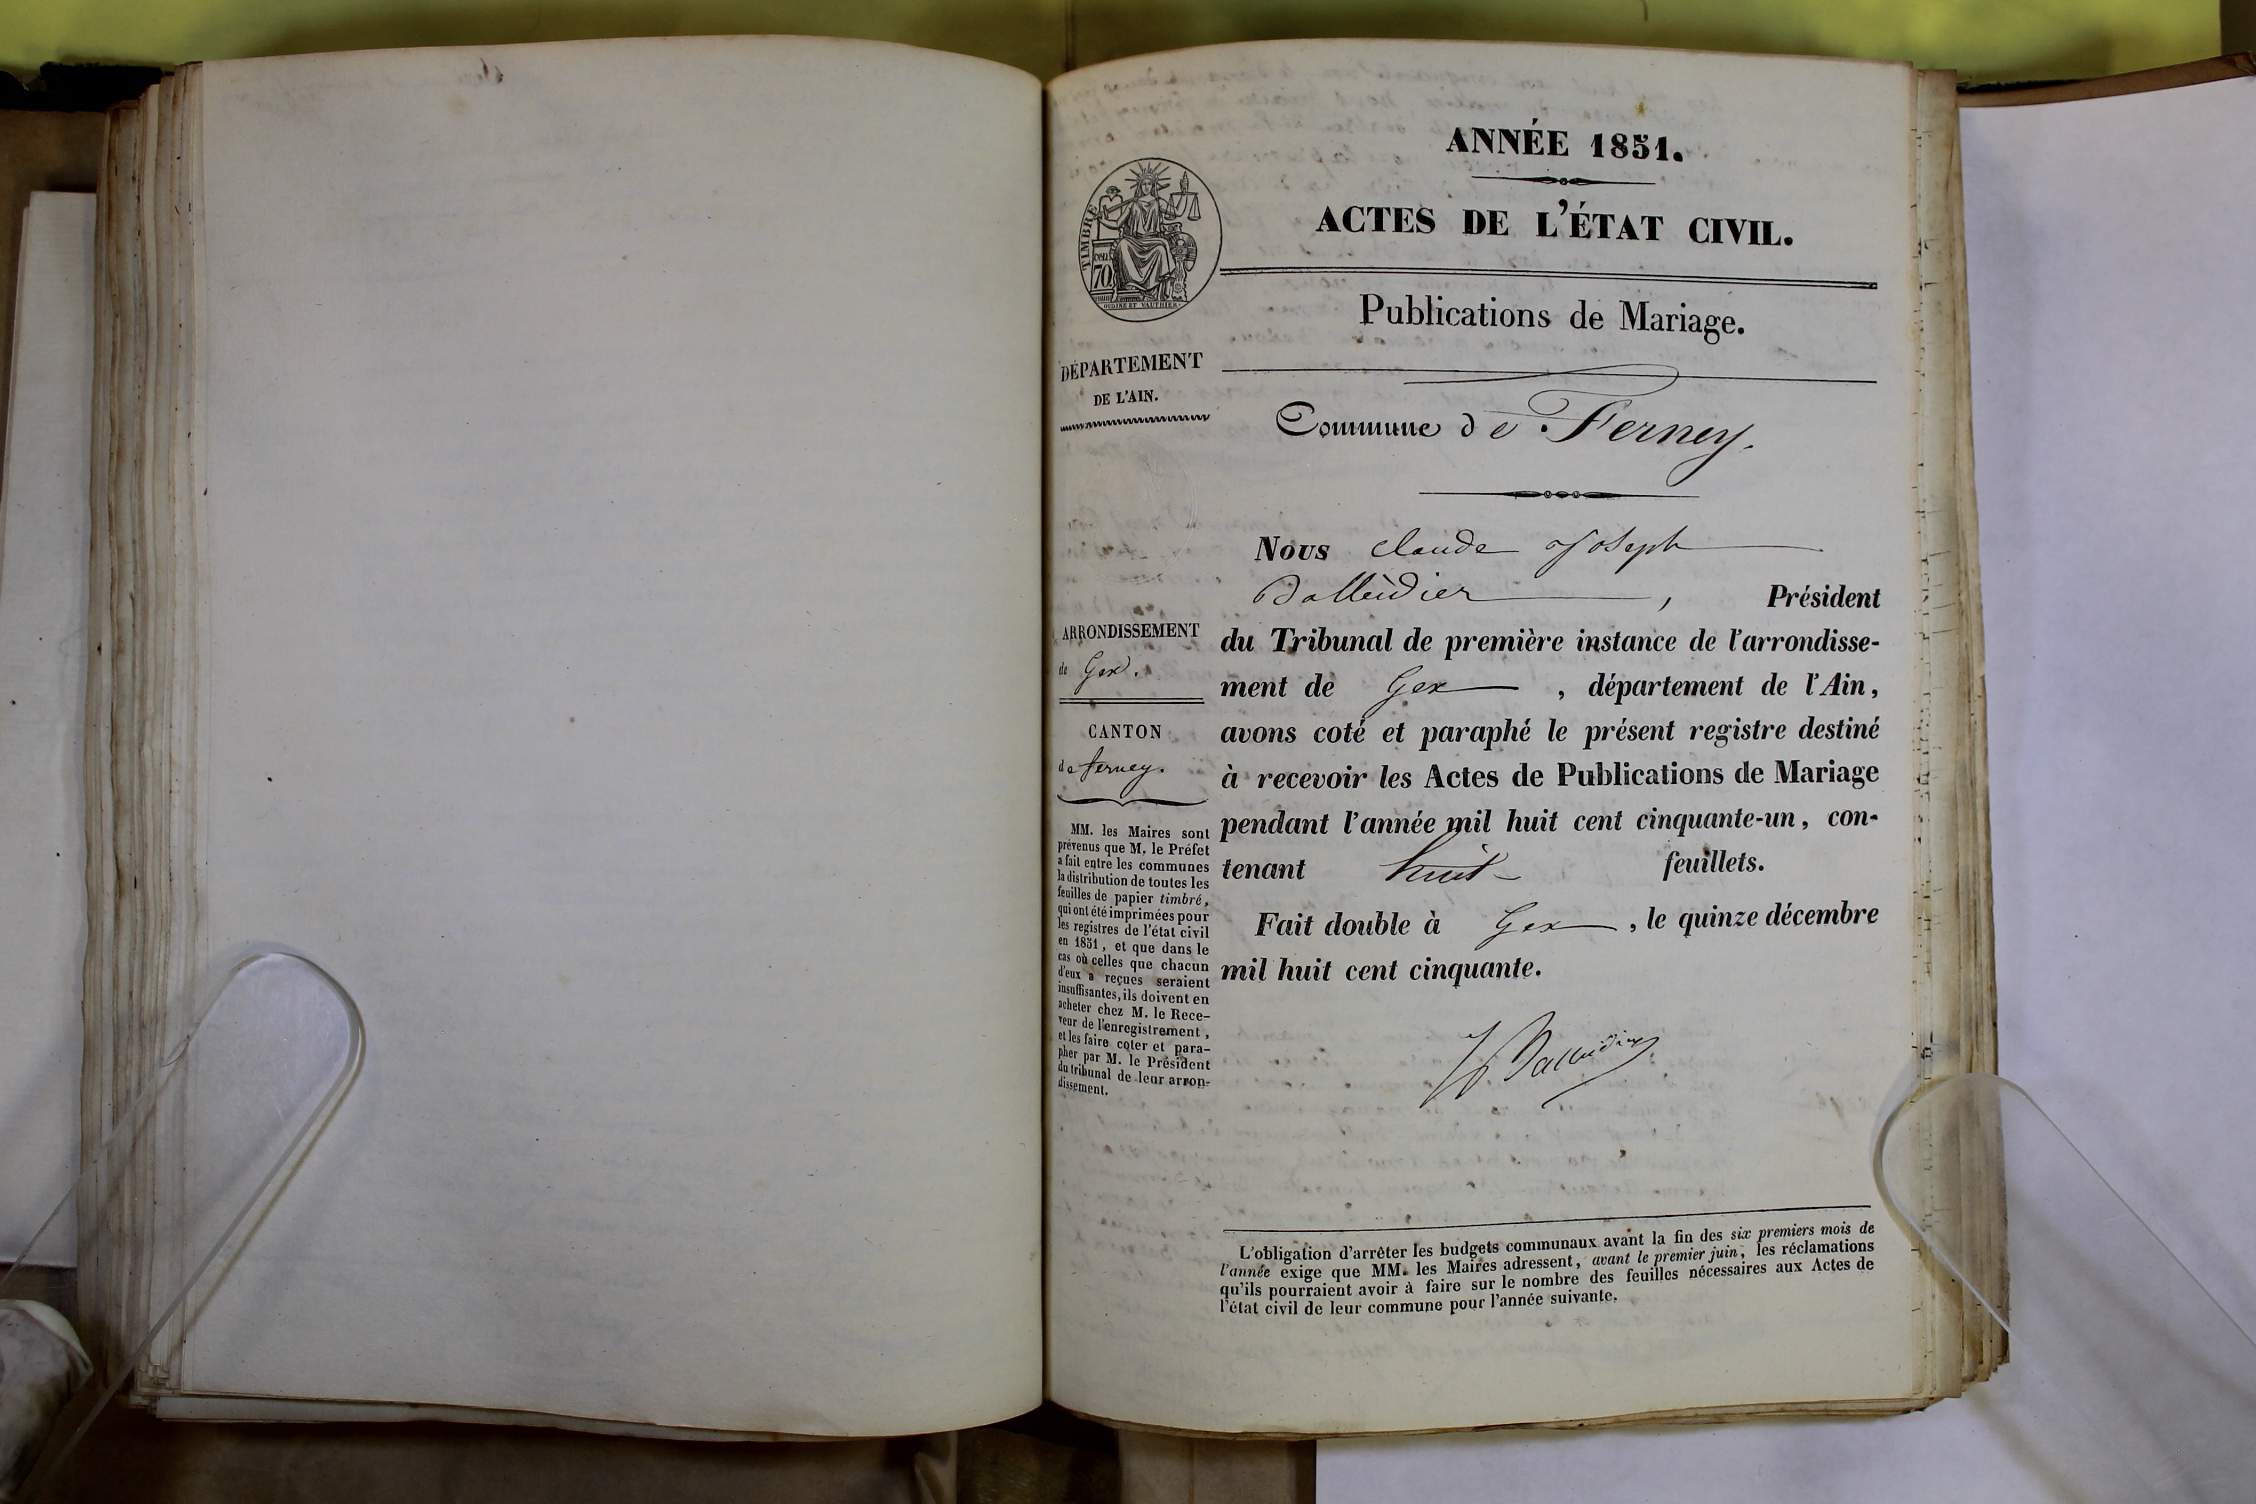 ANNÉE 1851.
ACTES DE L'ÉTAT CIVIL.
TIMBRE
70
OUDINÉ ET VAUTHIER
Publications de Mariage.
DÉPARTEMENT
DE L'AIN.
Commune de Ferney.
ARRONDISSEMENT
de Gex.
CANTON
de Ferney.
MM. les Maires sont
prévenus que M. le Préfet
a fait entre les communes
la distribution de toutes les
feuilles de papier timbré,
qui ont été imprimées pour
les registres de l'état civil
en 1851, et que dans le
cas où celles que chacun
d'eux a reçues seraient
insuffisantes, ils doivent en
acheter chez M. le Rece-
veur de l'enregistrement,
et les faire coter et para-
pher par M. le Président
du tribunal de leur arron-
dissement.
Nous Claude Joseph
Balleidier, Président
du Tribunal de première instance de l'arrondisse-
ment de Gex, département de l'Ain,
avons coté et paraphé le présent registre destiné
à recevoir les Actes de Publications de Mariage
pendant l'année mil huit cent cinquante-un, con-
tenant huit feuillets.
Fait double à Gex, le quinze décembre
mil huit cent cinquante.
Balleidier
L'obligation d'arrêter les budgets communaux avant la fin des six premiers mois de
l'année exige que MM. les Maires adressent, avant le premier juin, les réclamations
qu'ils pourraient avoir à faire sur le nombre des feuilles nécessaires aux Actes de
l'état civil de leur commune pour l'année suivante.